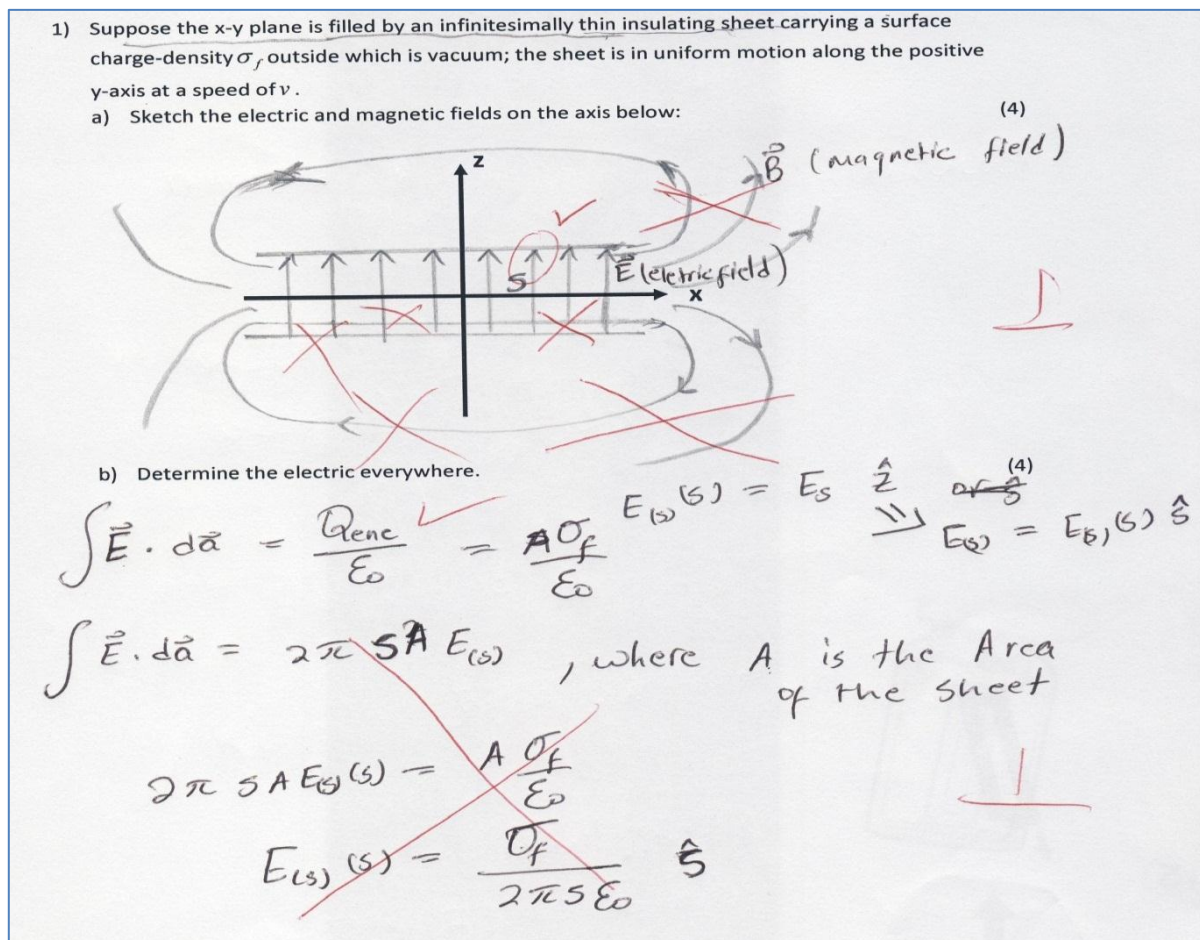 1) Suppose the x-y plane is filled by an infinitesimally thin insulating sheet carrying a surface
charge-density σ_f outside which is vacuum; the sheet is in uniform motion along the positive
y-axis at a speed of v.
a) Sketch the electric and magnetic fields on the axis below: (4)
z
B⃗ (magnetic field)
S
E⃗ (eletric field)
x
1
b) Determine the electric everywhere. (4)
∫E⃗ · da⃗ = Qenc/ε₀ = Aσ_f/ε₀ E(s)(s) = Es ẑ or ŝ
⇒ E(s) = E(s)(s) ŝ
∫E⃗ . da⃗ = 2π SA E(s) , where A is the Area
of the sheet
2π S A E(s)(s) = A σ_f/ε₀
1
E(s)(s) = σ_f/2πSε₀ ŝ